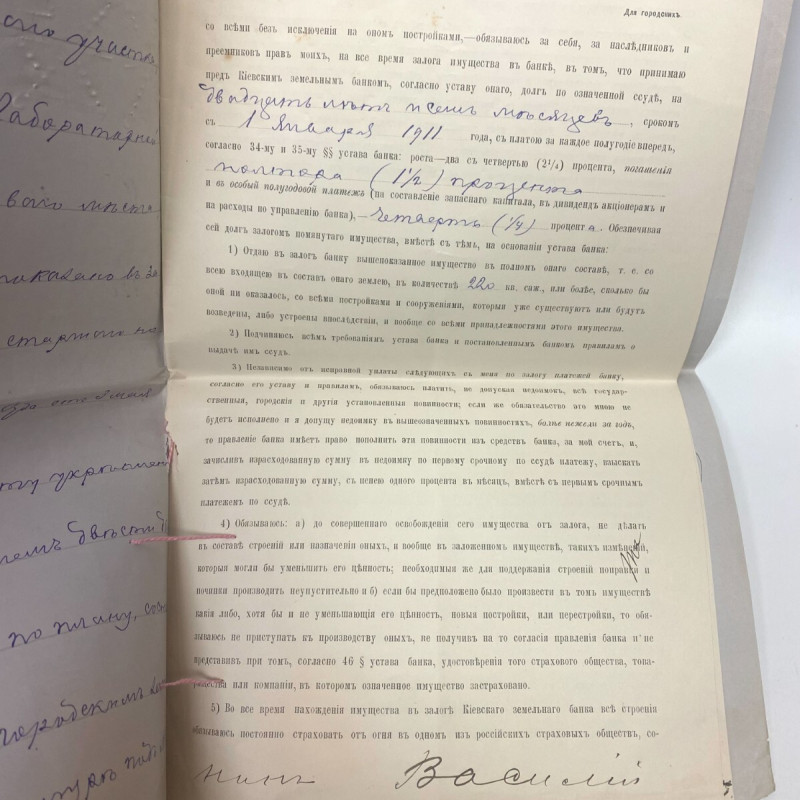 Для городскихъ.
со всѣми безъ исключенія на ономъ постройками,—обязываюсь за себя, за наслѣдниковъ и
преемниковъ правъ моихъ, на все время залога имущества въ банкѣ, въ томъ, что принимаю
предъ Кіевскимъ земельнымъ банкомъ, согласно уставу онаго, долгъ по означенной ссудѣ, на
двадцать лѣтъ и семь мѣсяцевъ, срокомъ
съ 1 Января 1911 года, съ платою за каждое полугодіе впередъ,
согласно 34-му и 35-му §§ устава банка: роста—два съ четвертью (2¹/₄) процента, погашенія
полтора (1½) процента
и въ особый полугодовой платежъ (на составленіе запаснаго капитала, въ дивидендъ акціонерамъ и
на расходы по управленію банка),—четверть (¼) процента. Обезпечивая
сей долгъ залогомъ помянутаго имущества, вмѣстѣ съ тѣмъ, на основаніи устава банка:
1) Отдаю въ залогъ банку вышепоказанное имущество въ полномъ онаго составѣ, т. е. со
всею входящею въ составъ онаго землею, въ количествѣ 220 кв. саж., или болѣе, сколько бы
оной ни оказалось, со всѣми постройками и сооруженіями, которыя уже существуютъ или будутъ
возведены, либо устроены впослѣдствіи, и вообще со всѣми принадлежностями этого имущества.
2) Подчиняюсь всѣмъ требованіямъ устава банка и постановленнымъ банкомъ правиламъ о
выдачѣ имъ ссудъ.
3) Независимо отъ исправной уплаты слѣдующихъ съ меня по залогу платежей банку,
согласно его уставу и правиламъ, обязываюсь платить, не допуская недоимокъ, всѣ государ-
ственныя, городскія и другія установленныя повинности; если же обязательство это мною не
будетъ исполнено и я допущу недоимку въ вышеозначенныхъ повинностяхъ, болѣе нежели за годъ,
то правленіе банка имѣетъ право пополнить эти повинности изъ средствъ банка, за мой счетъ, и,
зачисливъ израсходованную сумму въ недоимку по первому срочному по ссудѣ платежу, взыскать
затѣмъ израсходованную сумму, съ пенею одного процента въ мѣсяцъ, вмѣстѣ съ первымъ срочнымъ
платежемъ по ссудѣ.
4) Обязываюсь: а) до совершеннаго освобожденія сего имущества отъ залога, не дѣлать
въ составѣ строеній или назначенія оныхъ, и вообще въ заложенномъ имуществѣ, такихъ измѣненій,
которыя могли бы уменьшить его цѣнность; необходимыя же для поддержанія строеній поправки и
починки производить неупустительно и б) если бы предположено было произвести въ томъ имуществѣ
какія либо, хотя бы и не уменьшающія его цѣнность, новыя постройки, или перестройки, то обя-
зываюсь не приступать къ производству оныхъ, не получивъ на то согласія правленія банка и не
представивъ при томъ, согласно 46 § устава банка, удостовѣренія того страхового общества, това-
рищества или компаніи, въ которомъ означенное имущество застраховано.
5) Во все время нахожденія имущества въ залогѣ Кіевскаго земельнаго банка всѣ строенія
обязываюсь постоянно страховать отъ огня въ одномъ изъ россійскихъ страховыхъ обществъ, со-
Василій
участка
своего мѣста
показано въ
по плану,
городскимъ